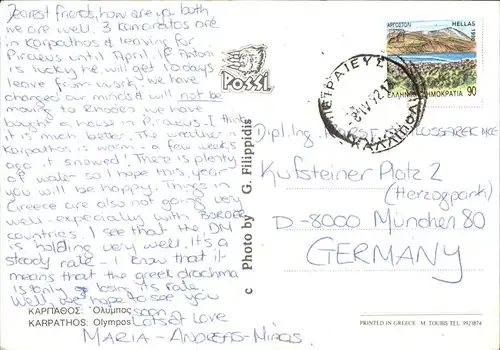 Dearest friends, how are you both
we are well. 3 Kamaratos are
in Karpathos & leaving for
Piraeus until April. If Antoni
is lucky he will get 10 days
leave from work, we have
changed our minds & will not be
moving to Rhodes we have
bought a house in Piraeus. I think
it is much better. The weather in
Karpathos is warm a few weeks
ago it snowed! There is plenty
of water so I hope this year
you will be happy. Things in
Greece are also not going very
well - expecially with BORDER
countries. I see that the DM
is holding very well. It's a
steady rate - I know that it
means that the greek drachma
is only losing its rate.
Well, we hope to see you
soon.
Lots of Love
MARIA - ANDREAS -
ΚΑΡΠΑΘΟΣ: Όλυμπος
KARPATHOS: Olympos
c Photo by G. Filippidis
POSSI
ΑΡΓΟΣΤΟΛΙ HELLAS
ΕΛΛΗΝΙΚΗ ΔΗΜΟΚΡΑΤΙΑ 90
ΠΕΙΡΑΙΕΥΣ
ΚΑΛΛΙΠΟΛΙΣ
Dipl. Ing.
Kufsteiner Platz 2
(Herzogpark)
D-8000 München 80
GERMANY
PRINTED IN GREECE M. TOUBIS TEL. 9923874